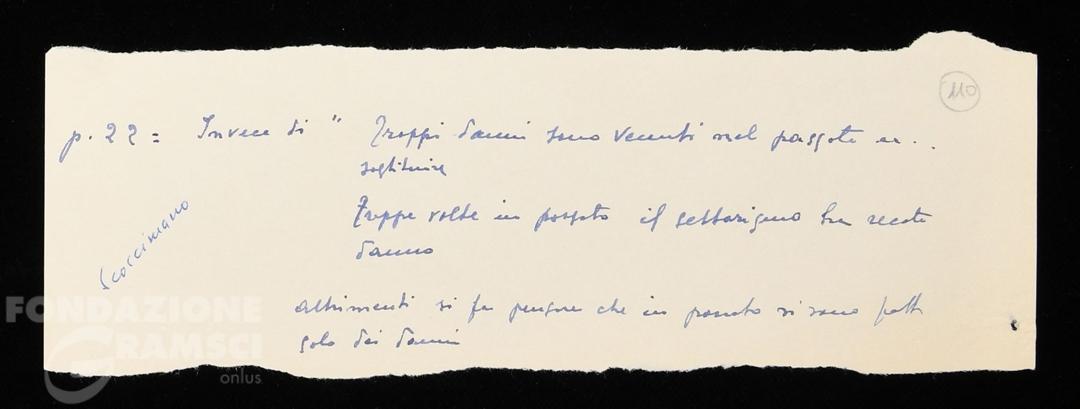 110
p. 22 = Invece di " Troppi danni sono venuti nel passato ..
sostituire
Troppe volte in passato il settarismo ha recato
danno
Scoccimano
altrimenti si fa pensare che in passato si sono fatti
solo dei danni
FONDAZIONE
GRAMSCI
onlus